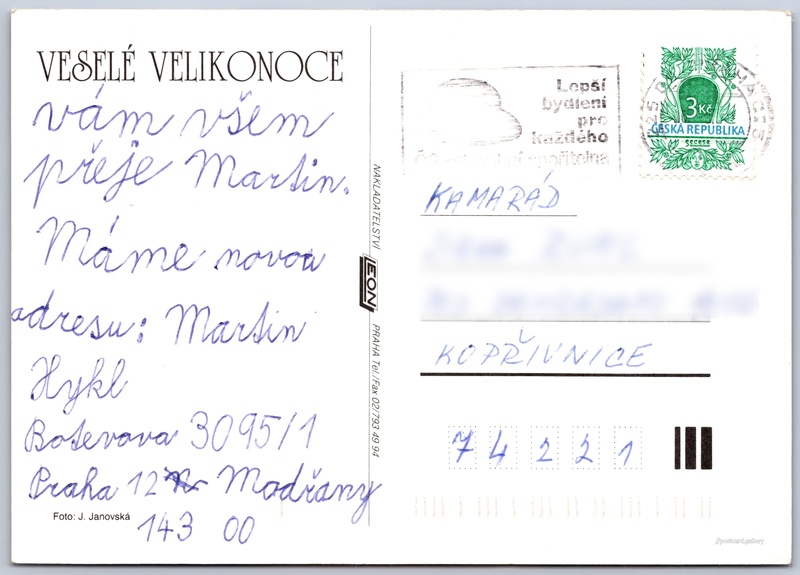 VESELÉ VELIKONOCE
vám všem
přeje Martin.
Máme novou
adresu: Martin
Hykl
Botevova 3095/1
Praha 12 Modřany
143 00
Foto: J. Janovská
NAKLADATELSTVÍ LEON PRAHA Tel./Fax 02/783 49 94
Lepší
bydlení
pro
každého
spořitelna
3 Kč
ČESKÁ REPUBLIKA
secese
KAMARÁD
KOPŘIVNICE
74221
//postcard.gallery